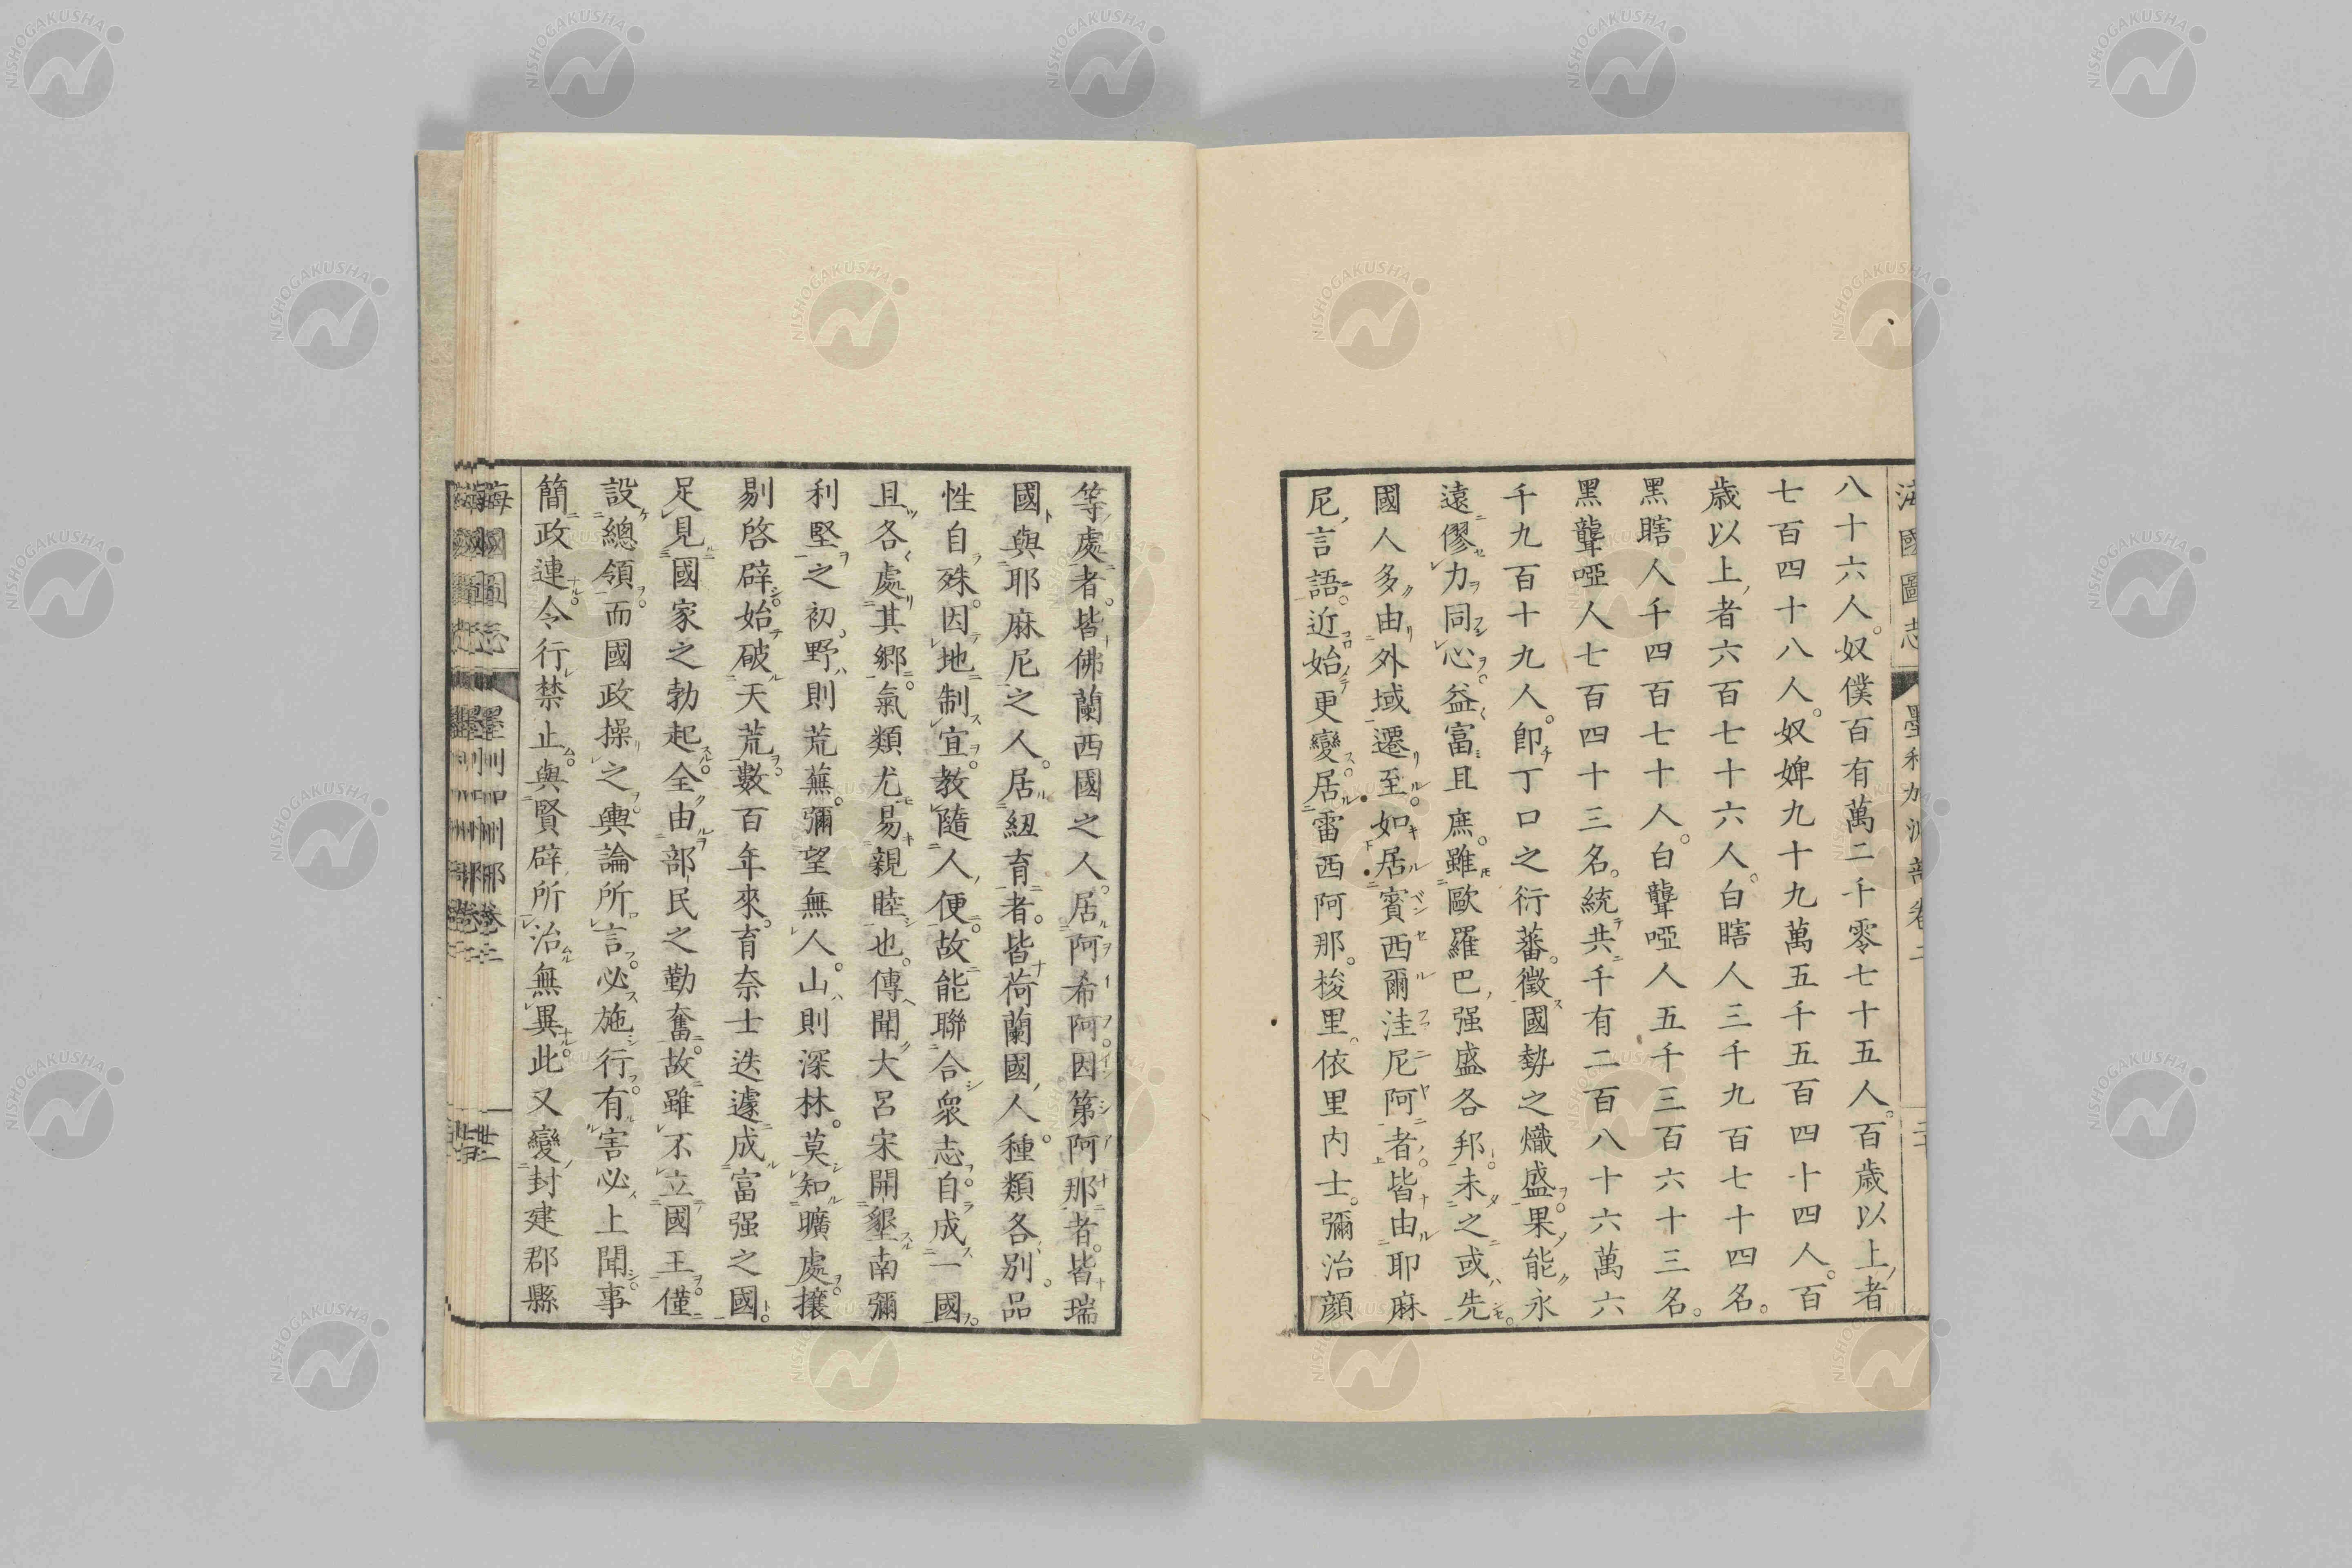 八十六人。奴僕百有萬二千零七十五人。百歳以上者
七百四十八人。奴婢九十九萬五千五百四十四人。百
歳以上者六百七十六人。白瞎人三千九百七十四名。
黑瞎人千四百七十人。白聾啞人五千三百六十三名。
黑聾啞人七百四十三名。統共千有二百八十六萬六
千九百十九人。卽丁口之衍蕃。徵國勢之熾盛。果能永
遠僇力同心。益富且庶。雖歐羅巴强盛各邦。未之或先。
國人多由外域遷至。如居賓西爾洼尼阿者。皆由耶麻
尼言語。近始更變。居雷西阿那。梭里。依里內士。彌治顔
等處者。皆佛蘭西國之人。居阿希阿。因第阿那者。皆瑞
國與耶麻尼之人。居紐育者。皆荷蘭國人。種類各別。品
性自殊。因地制宜。教隨人便。故能聯合衆志。自成一國。
且各處其鄉。氣類尤易親睦也。傳聞大呂宋開墾南彌
利堅之初。野則荒蕪。彌望無人。山則深林。莫知曠處。攘
剔啓辟。始破天荒。數百年來。育奈士迭遽成富强之國。
足見國家之勃起。全由部民之勤奮。故雖不立國王。僅
設總領。而國政操之輿論。所言必施行。有害必上聞。事
簡政連。令行禁止。與賢辟所治無異。此又變封建郡縣
海國圖志
墨利加洲部卷二
NISHOGAKUSHA